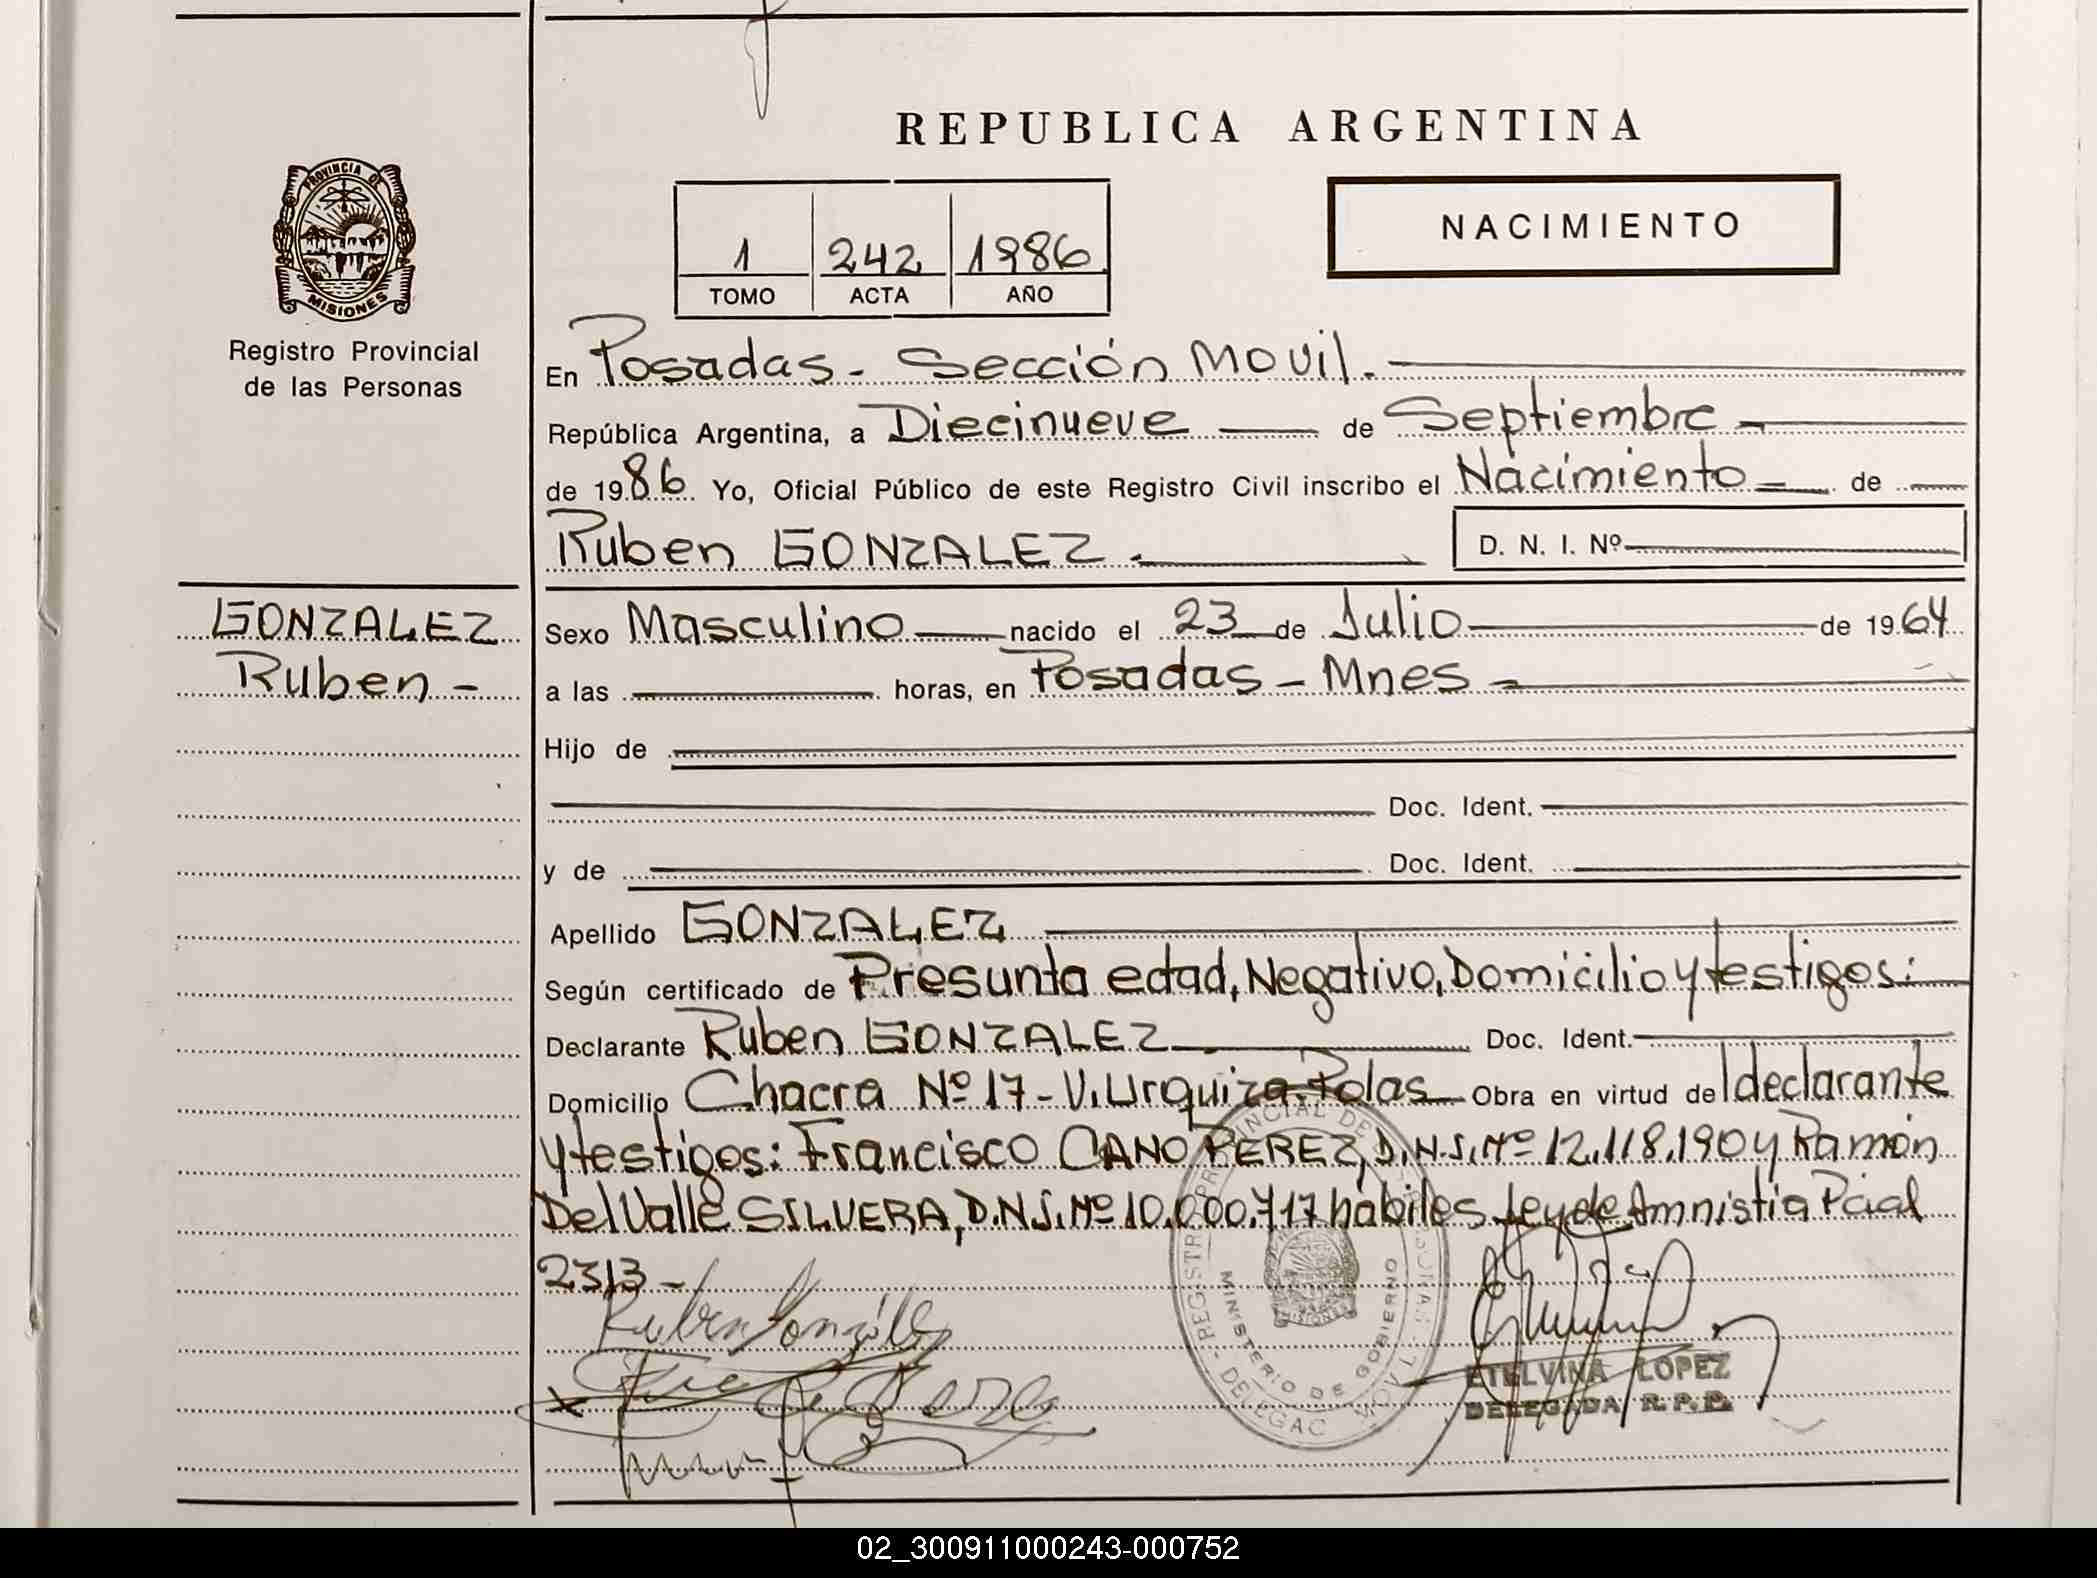 REPUBLICA ARGENTINA
PROVINCIA DE
MISIONES
Registro Provincial
de las Personas
1 242 1986
TOMO ACTA AÑO
NACIMIENTO
En Posadas - Sección Movil.
República Argentina, a Diecinueve de Septiembre
de 1986 Yo, Oficial Público de este Registro Civil inscribo el Nacimiento de
Ruben GONZALEZ. D. N. I. Nº
GONZALEZ
Ruben -
Sexo Masculino nacido el 23 de Julio de 1964
a las horas, en Posadas - Mnes -
Hijo de
Doc. Ident.
y de Doc. Ident.
Apellido GONZALEZ
Según certificado de Presunta edad, Negativo, Domicilio y testigos:
Declarante Ruben GONZALEZ Doc. Ident.
Domicilio Chacra Nº 17 - V. Urquiza - Pdas Obra en virtud del declarante
y testigos: Francisco CANO PEREZ, D.N.I. Nº 12.118.190 y Ramón
Del Valle SILVERA, D.N.I. Nº 10.000.717 hábiles Ley de Amnistia Pcial
2313 -
Ruben González
MINISTERIO DE GOBIERNO
ETELVINA LOPEZ
DELEGADA R.P.P.
02_300911000243-000752